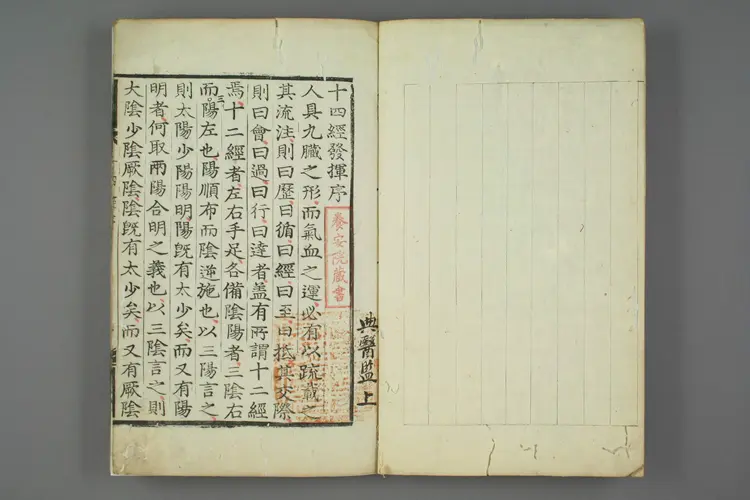 十四經發揮序
養安院藏書
人具九臟之形而氣血之運必有以䟽載之
其流注則曰歷曰循曰經曰至曰抵其交際
則曰會曰過曰行曰達者盖有所謂十二經
焉十二經者左右手足各備陰陽者三陰右
而陽左也陽順布而陰逆施也以三陽言之
則太陽少陽陽明陽旣有太少矣而又有陽
明者何取兩陽合明之義也以三陰言之則
大陰少陰厥陰陰旣有太少矣而又有厥陰
典醫監上